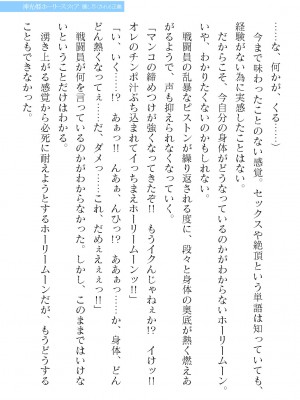 （……な、何かが、くる……）
　今まで味わったことのない感覚。セックスや絶頂という単語は知っていても、
経験がない為に実感したことはない。
　だからこそ、今自分の身体がどうなっているのかがわからないホーリームーン。
いや、わかりたくないのかもしれない。
　戦闘員の乱暴なピストンが繰り返される度に、段々と身体の奥底が熱く燃えあ
がるようで、声も抑えられなくなっていく。
「マンコの締めつけが強くなってきたぞ!!　もうイクんじゃねぇか!?　イけッ!!
オレのチンポ汁ぶち込まれてイっちまえホーリームーンッ!!」
「い、いく……!?　あぁっ!!　んぁぁ、んひっ!?　ああぁっ……か、身体、どん
どん熱くなってぇ……だ、ダメっ……これ、だめぇえぇっっ!!」
　戦闘員が何を言っているのかがわからなかった。しかし、このままではいけな
いということだけはわかる。
　湧き上がる感覚から必死に耐えようとするホーリームーンだが、もうどうする
こともできなかった。